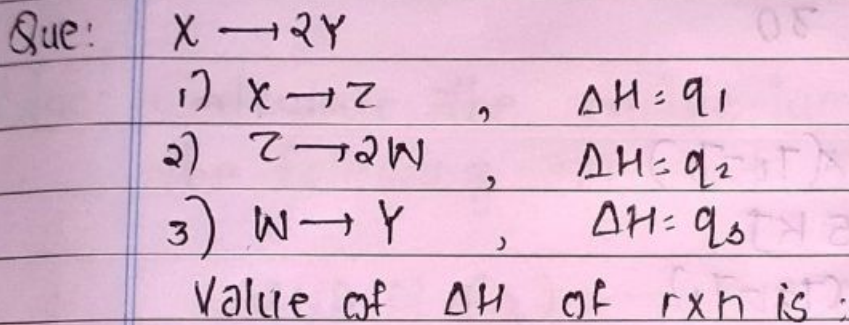 Que: X → 2Y
1) X → Z , ΔH = q1
2) Z → 2W , ΔH = q2
3) W → Y , ΔH = q3
Value of ΔH of rxn is :